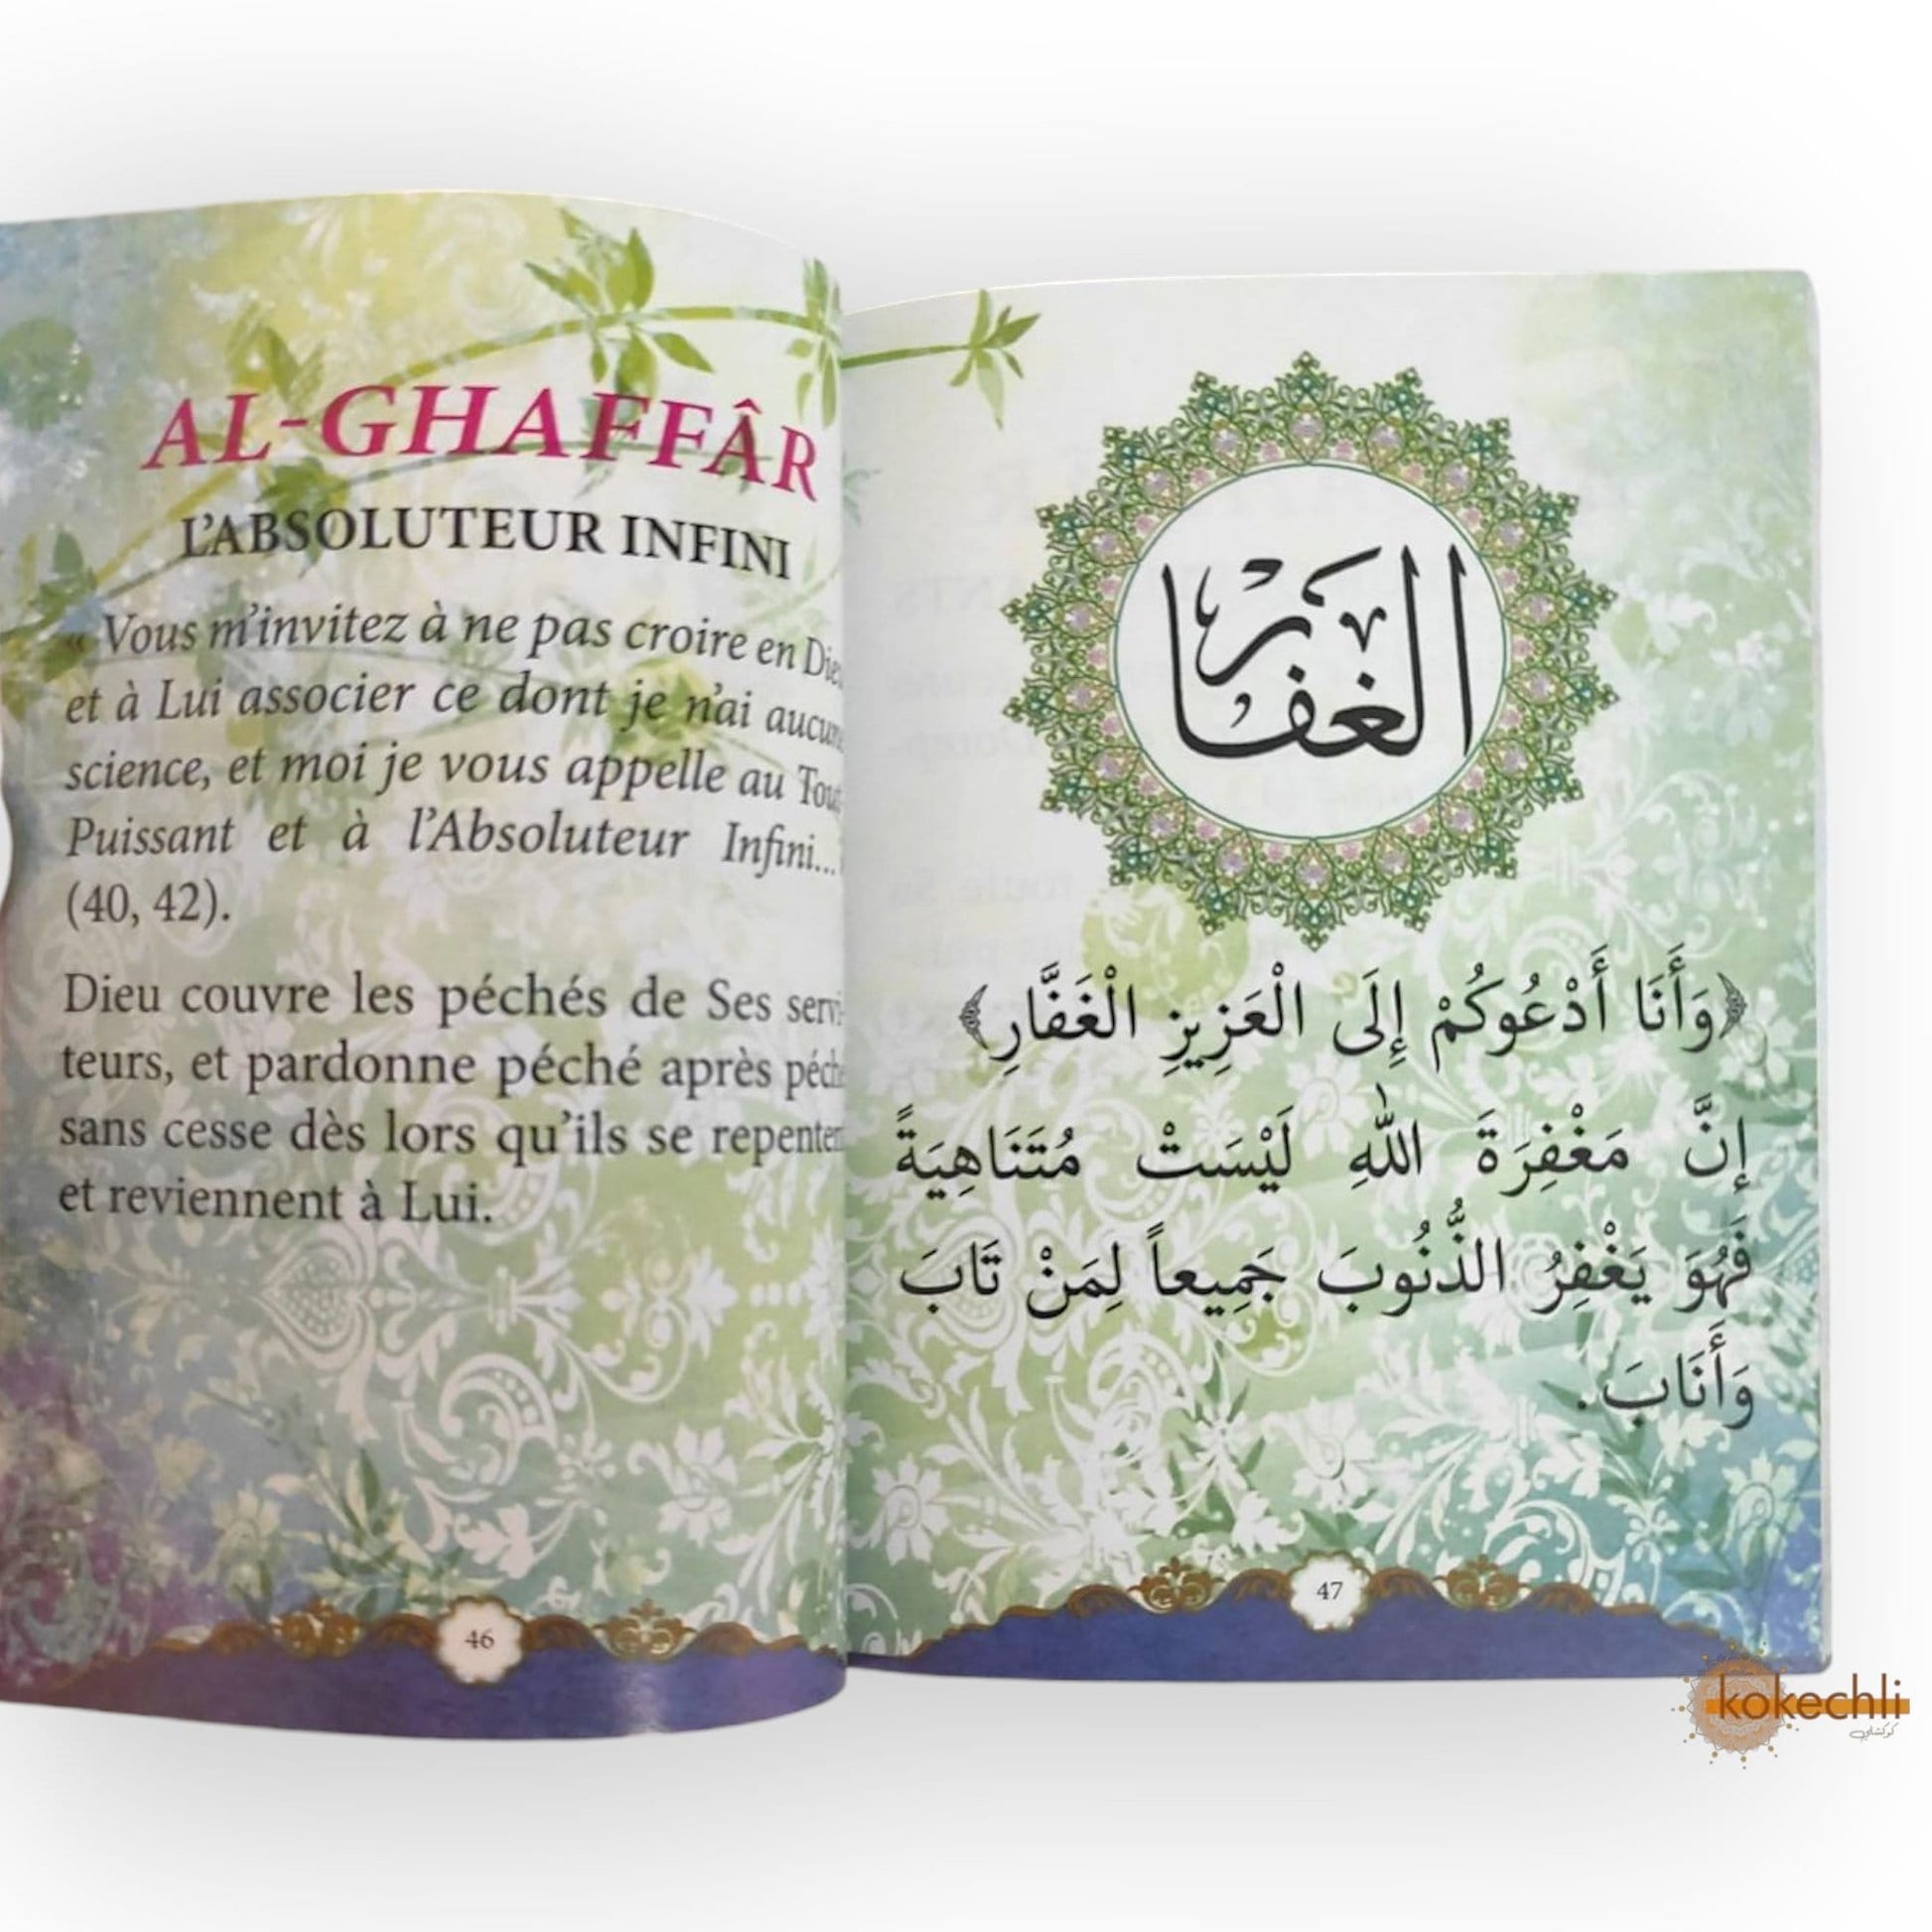 AL-GHAFFÂR
L'ABSOLUTEUR INFINI
« Vous m'invitez à ne pas croire en
et à Lui associer ce dont je n'ai
science, et moi je vous appelle au
Puissant et à l'Absoluteur Infini...
(40, 42).
Dieu couvre les péchés de Ses servi-
teurs, et pardonne péché après
sans cesse dès lors qu'ils se
et reviennent à Lui.
46
الغفار
﴿وَأَنَا أَدْعُوكُمْ إِلَى الْعَزِيزِ الْغَفَّارِ﴾
إِنَّ مَغْفِرَةَ اللّٰهِ لَيْسَتْ مُتَنَاهِيَةً
فَهُوَ يَغْفِرُ الذُّنُوبَ جَمِيعاً لِمَنْ تَابَ
وَأَنَابَ.
47
kokechli
كوكشلي